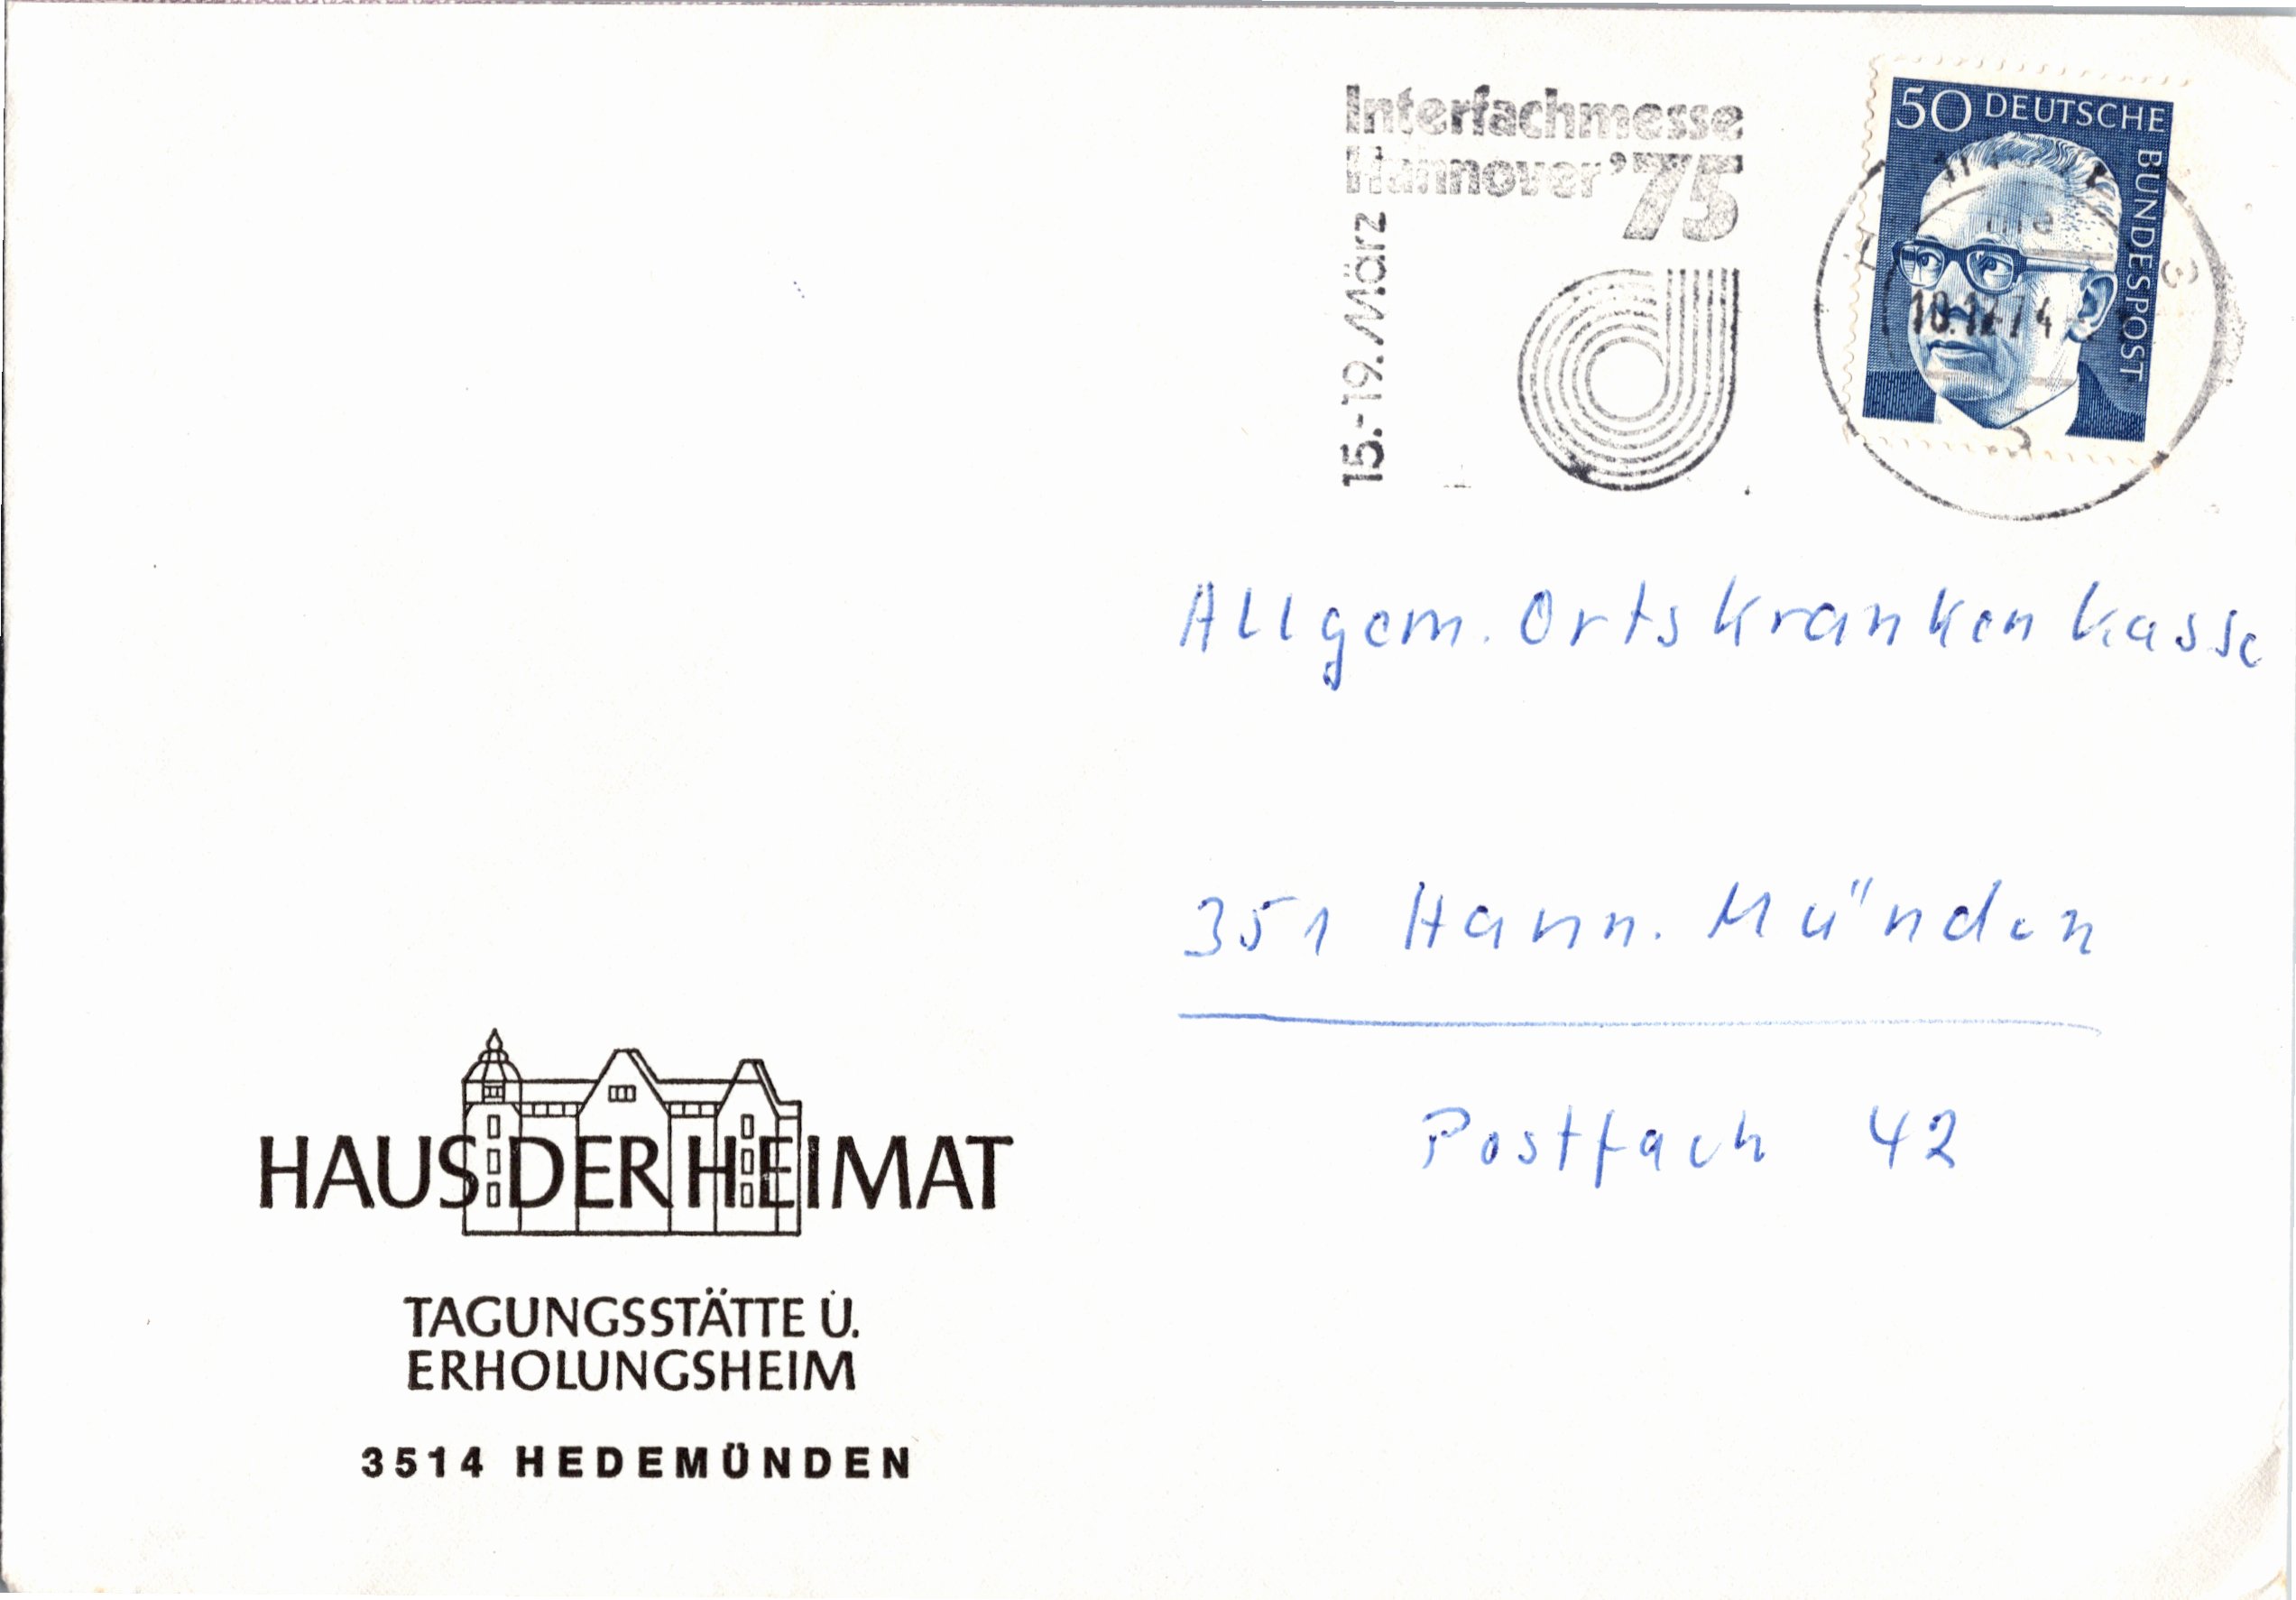 Interfachmesse
Hannover '75
15.-19. März
50 DEUTSCHE
BUNDESPOST
Allgem. Ortskrankenkasse
351 Hann. Münden
Postfach 42
HAUS DER HEIMAT
TAGUNGSSTÄTTE U.
ERHOLUNGSHEIM
3514 HEDEMÜNDEN